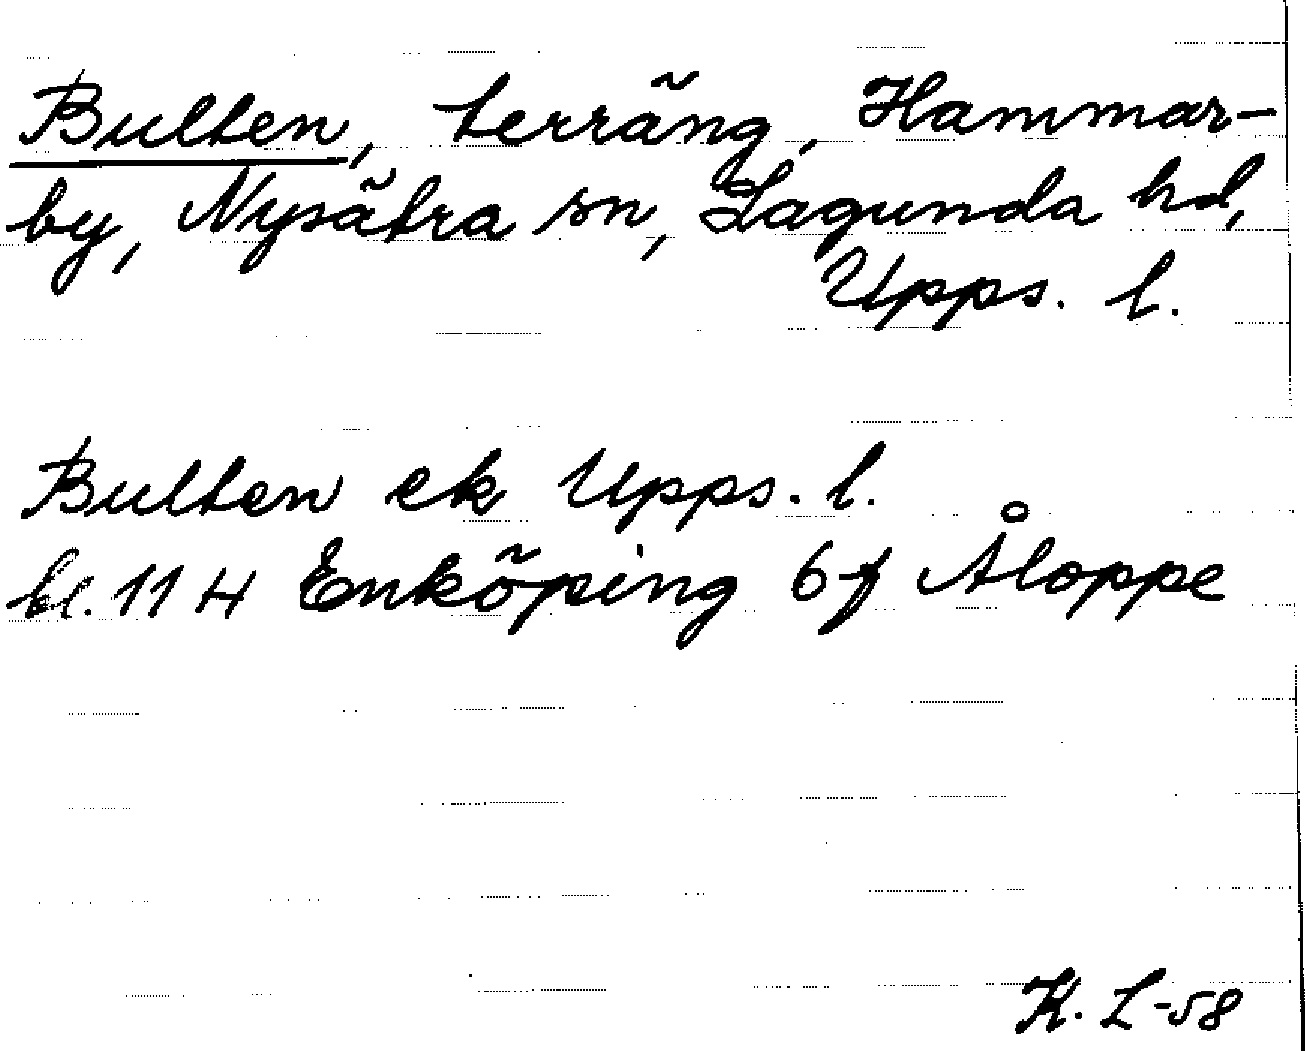 Bulten, terräng, Hammar-
by, Nysätra sn, Lagunda hd,
Upps. l.
Bulten ek Upps. l.
bl. 114 Enköping 6f Åloppe
K. L-58